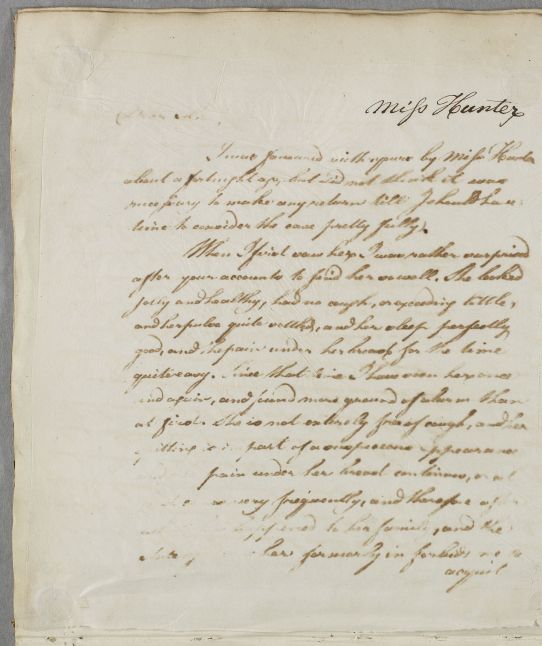 Miss Hunter
Dear Sir,
I was favoured with yours by Miss Hunter
about a fortnight ago, but did not think it was
necessary to make any return till I should have
time to consider the case pretty fully.
When I first saw her I was rather surprised
after your accounts to find her so well. She looked
jolly and healthy, had no cough, or exceeding little,
and her pulse quite settled, and her sleep perfectly
good, and the pain under her breast for the time
quite easy. Since that time I have seen her once
and again, and find more ground of alarm than
at first. She is not entirely free of cough, and her
spitting is in part of a suspicious appearance
pain under her breast continues, or at
very frequently, and therefore after
happened to her family, and the
her formerly in forbids me to
acquit